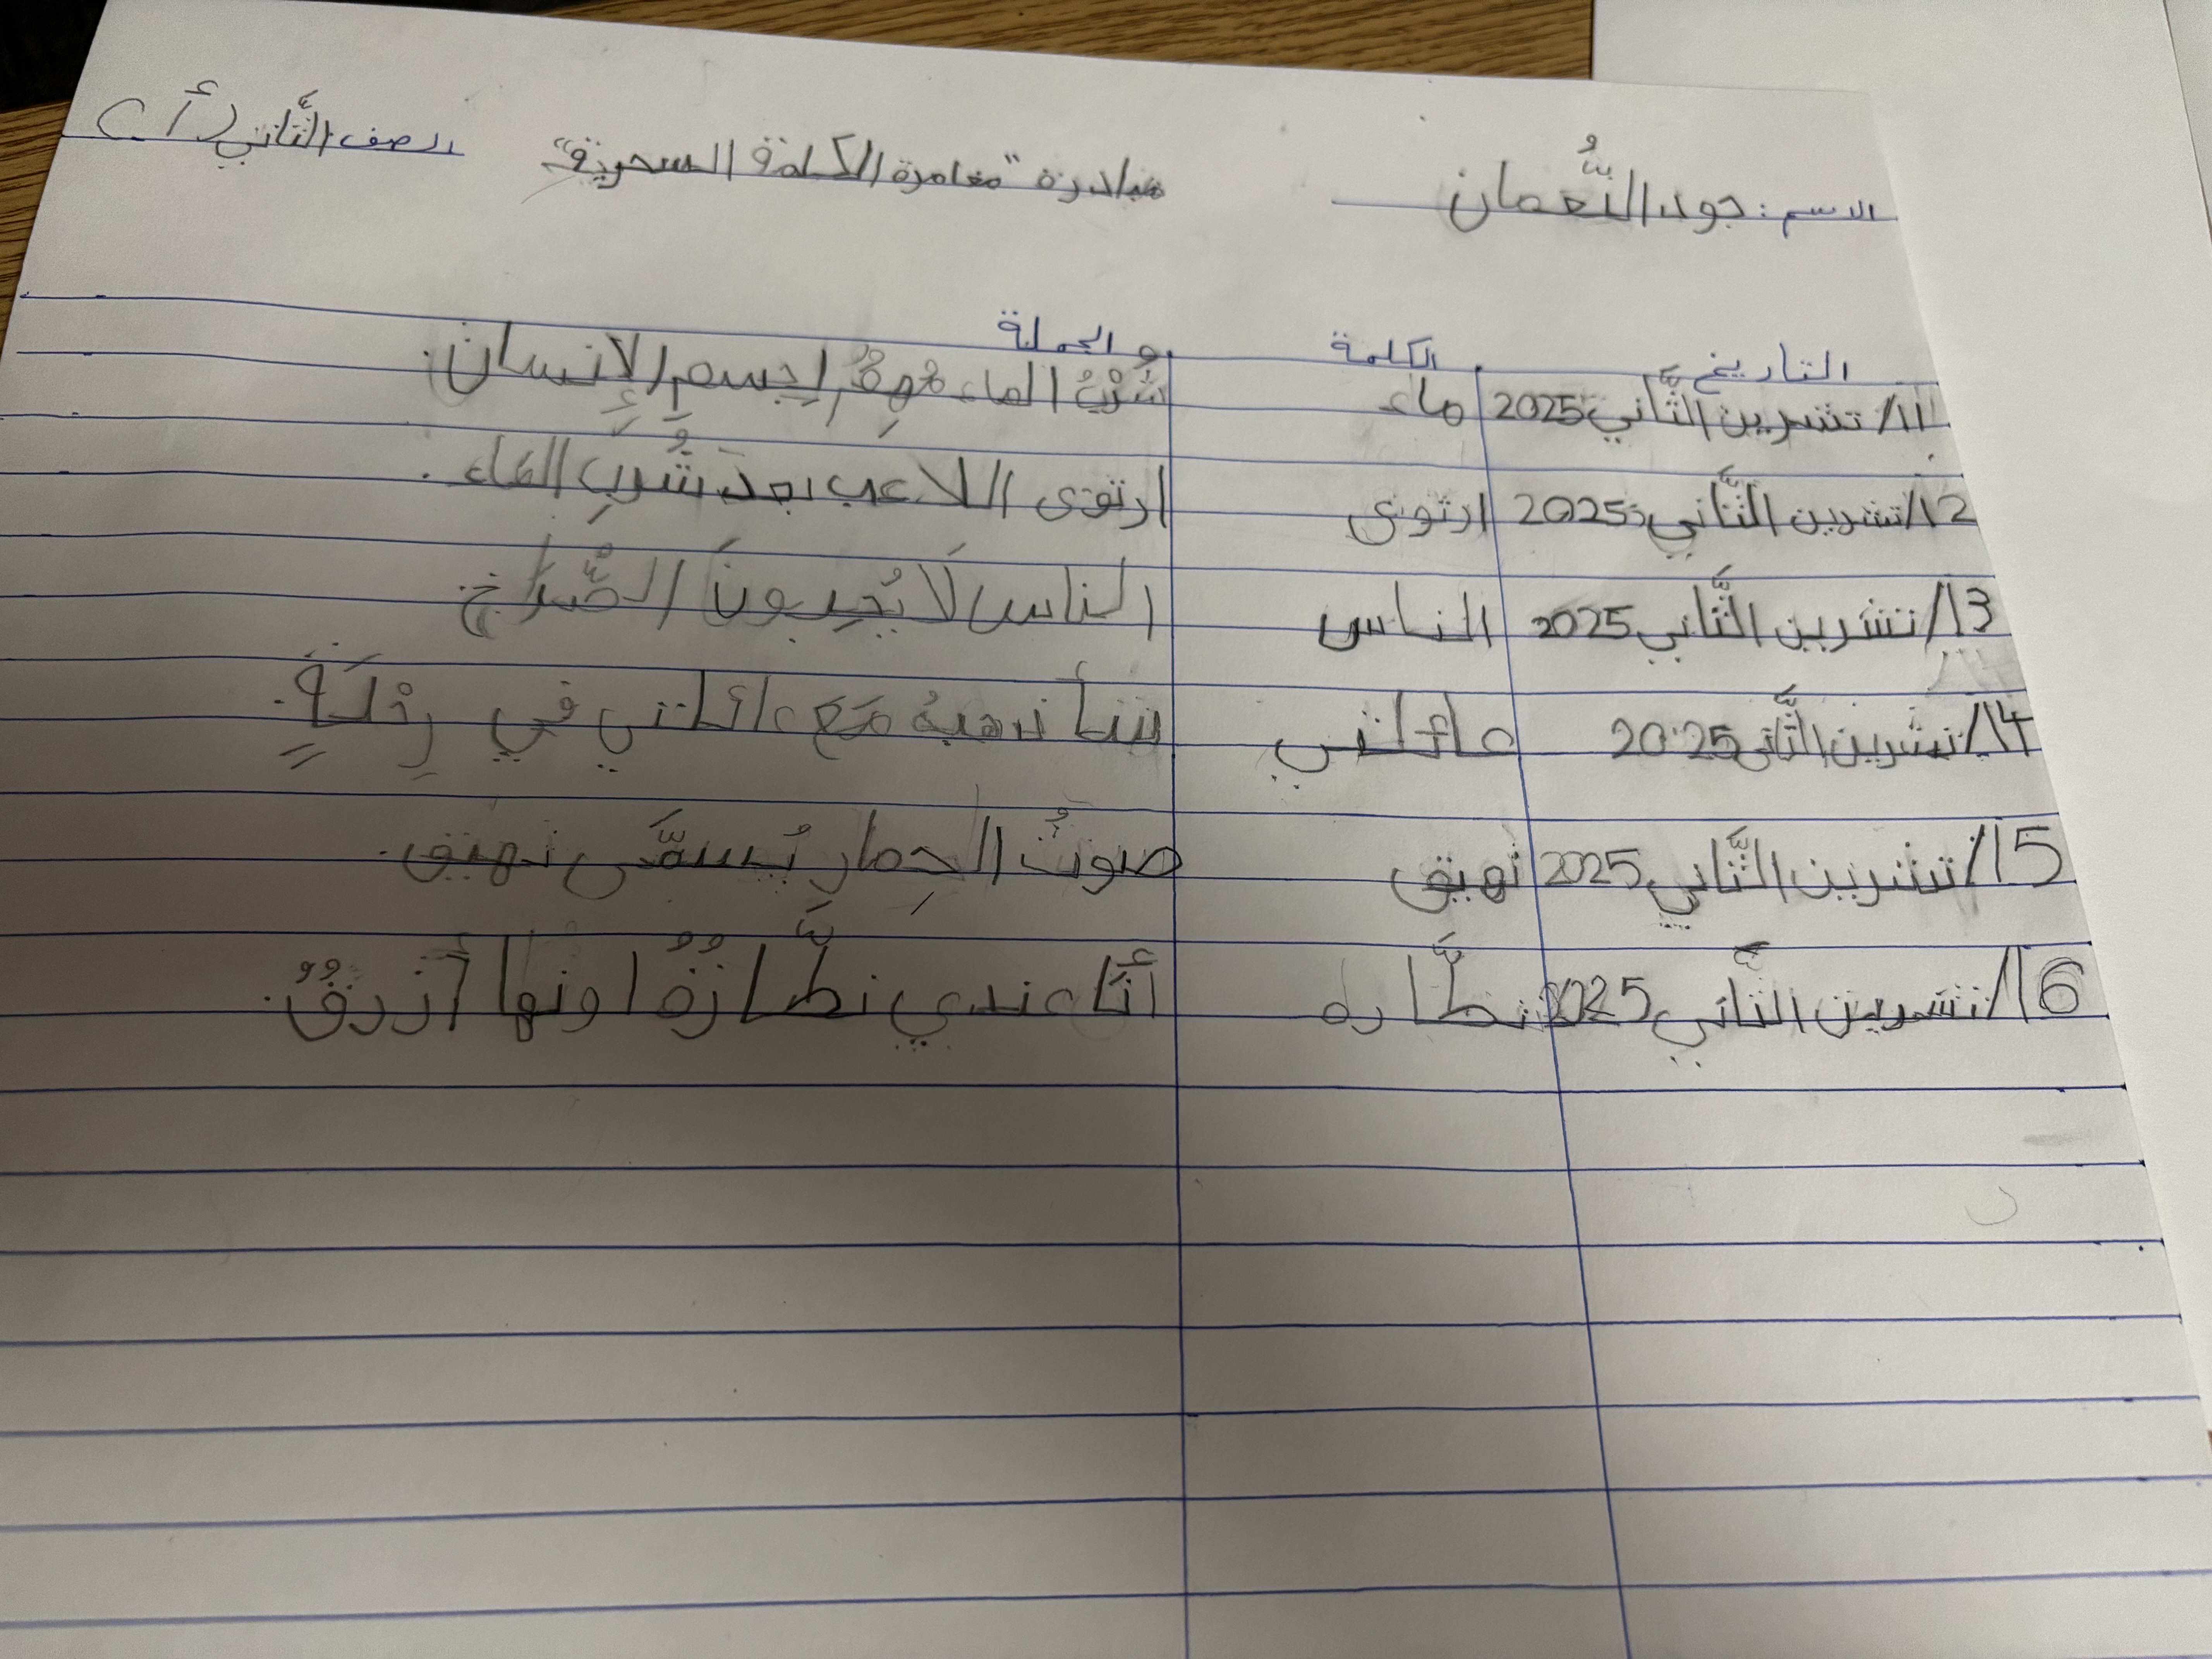 الاسم: جود النُّعمان مبادرة "مغامرة الكلمة السحرية" الصف الثَّاني (أ)
التاريخ الكلمة الجملة
11/ تشرين الثَّاني 2025 ماء شُرْبُ الماء مُهِمٌّ لِجسمِ الإنسان.
12/ تشرين الثَّاني 2025 ارتوى ارتوى اللاعب بعدَ شُربِ الماء.
13/ تشرين الثَّاني 2025 الناس الناس لَا يُحِبونَ الصُّراخ.
14/ تشرين الثَّاني 2025 عائلتي سأذهبُ مَعَ عائلتي في رِحْلَةٍ.
15/ تشرين الثَّاني 2025 نهيق صوتُ الحِمارِ يُسمَّى نهيق.
16/ تشرين الثَّاني 2025 نظَّاره أنَا عندي نظَّارةٌ لونها أزرقٌ.